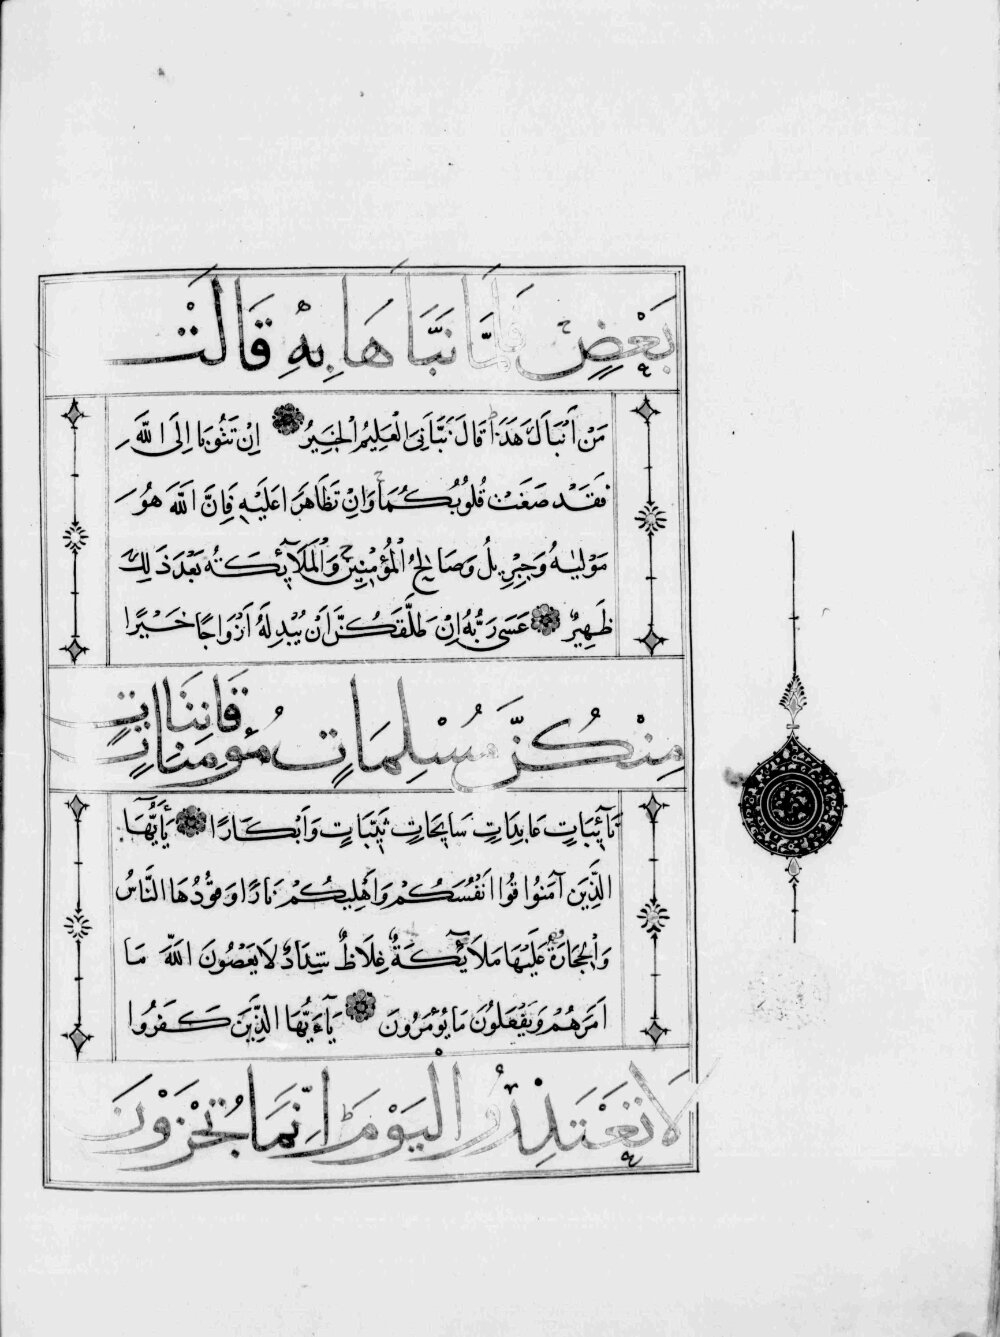 بَعْضٍ فَلَمَّا نَبَّأَهَا بِهِ قَالَتْ
مَنْ أَنْبَأَكَ هَذَا قَالَ نَبَّأَنِيَ الْعَلِيمُ الْخَبِيرُ إِنْ تَتُوبَا إِلَى اللَّهِ
فَقَدْ صَغَتْ قُلُوبُكُمَا وَإِنْ تَظَاهَرَا عَلَيْهِ فَإِنَّ اللَّهَ هُوَ
مَوْلَيٰهُ وَجِبْرِيلُ وَصَالِحُ الْمُؤْمِنِينَ وَالْمَلَآئِكَةُ بَعْدَ ذَلِكَ
ظَهِيرٌ عَسَى رَبُّهُ إِنْ طَلَّقَكُنَّ أَنْ يُبْدِلَهُ أَزْوَاجًا خَيْرًا
مِنْكُنَّ مُسْلِمَاتٍ مُؤْمِنَاتٍ قَانِتَاتٍ
تَآئِبَاتٍ عَابِدَاتٍ سَايِحَاتٍ ثَيِّبَاتٍ وَأَبْكَارًا يَآأَيُّهَا
الَّذِينَ آمَنُوا قُوا أَنْفُسَكُمْ وَأَهْلِيكُمْ نَارًا وَقُودُهَا النَّاسُ
وَالْحِجَارَةُ عَلَيْهَا مَلَآئِكَةٌ غِلَاظٌ شِدَادٌ لَا يَعْصُونَ اللَّهَ مَا
أَمَرَهُمْ وَيَفْعَلُونَ مَا يُؤْمَرُونَ يَآءَيُّهَا الَّذِينَ كَفَرُوا
لَا تَعْتَذِرُوا الْيَوْمَ إِنَّمَا تُجْزَوْنَ